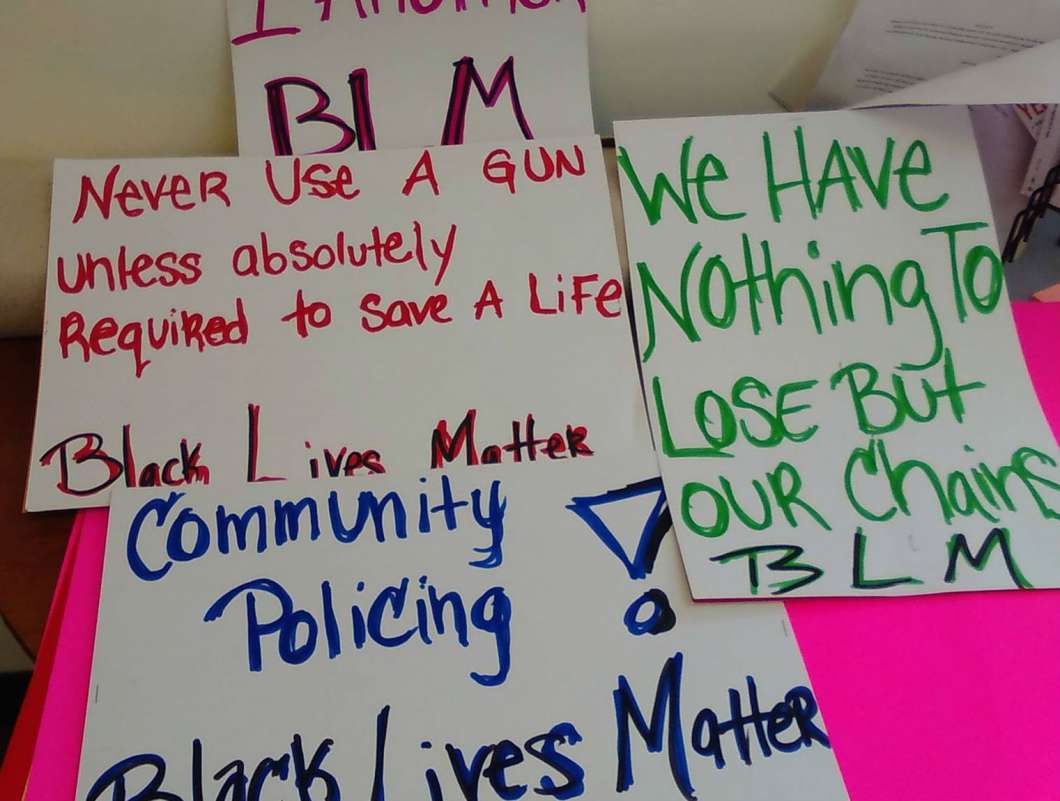 BLM
Never Use A Gun
unless absolutely
Required to save A Life
Black Lives Matter
We Have
Nothing To
Lose But
our Chains
BLM
Community
Policing !
Black Lives Matter